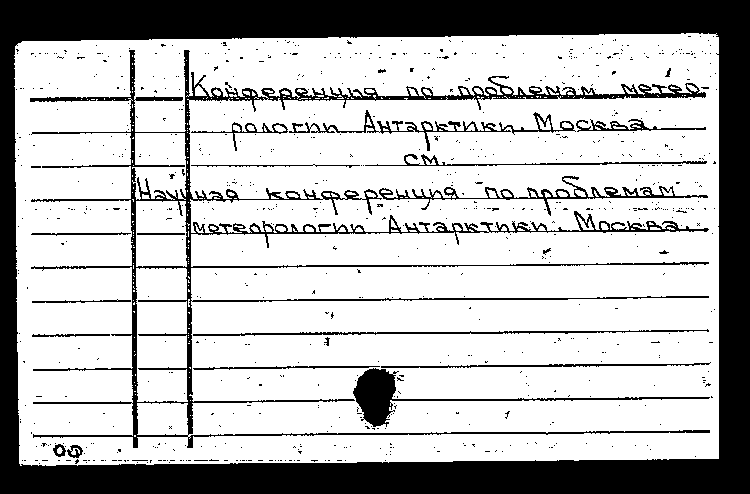 Конференция по проблемам метео-
рологии Антарктики. Москва.
см.
Научная конференция по проблемам
метеорологии Антарктики. Москва.
оф